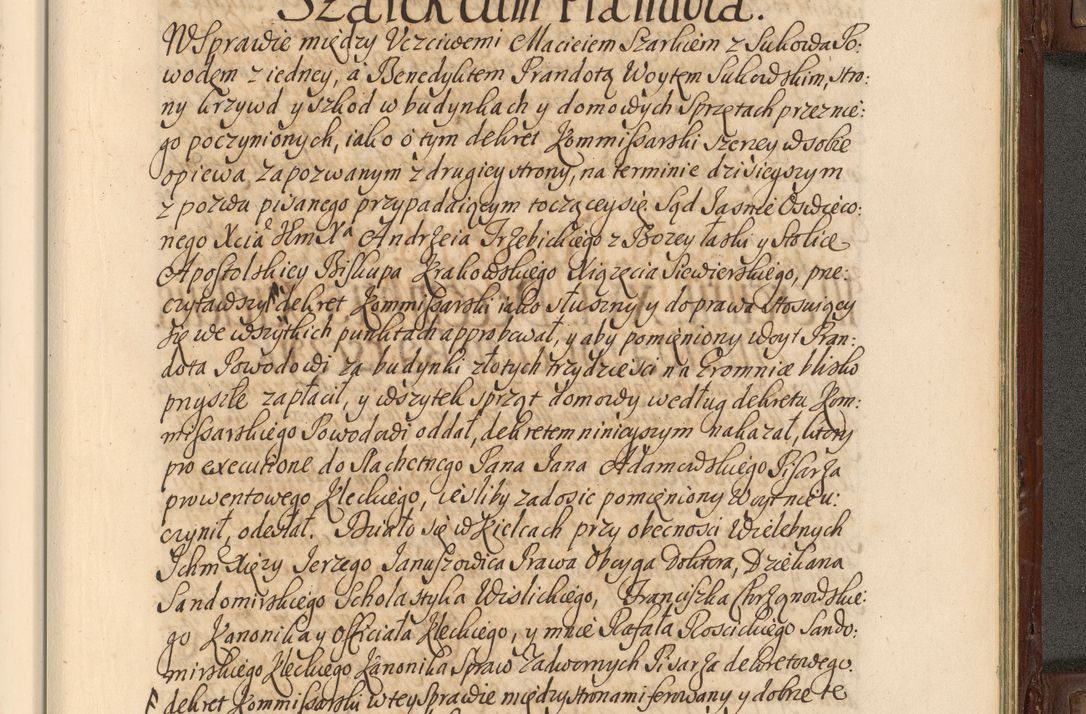 Szarek cum Prandota.
W Sprawie między Uczciwemi Macieiem Szarkiem z Sukowa Po:
wodem z iedney, a Benedyktem Prandotą Woytem Sukowskim, stro:
ny krzywd y szkod w budynkach y domowych Sprzętach przez nie:
go poczynionych, iako o tym dekret Kommissarski szerzey w sobie
opiewa zapozwanym z drugiey strony, na terminie dzisieyszym
z pozwu pisanego przypadaiącym toczącey się Sąd Jasnie Oswięco:
nego Xcia Jmci Xa Andrzeia Trzebickiego z Bozey łaski y Stolice
Apostolskiey Biskupa Krakowskiego Xiązęcia Siewierskiego, prze:
czytawszy dekret Kommissarski iako słuszny y do prawa stosuiący
się we wszytkich punktach approbował, y aby pomięniony woyt Pran:
dota Powodowi za budynki złotych trzydzieści na Gromnice blisko
przyszłe zapłacił, y wszytek sprząt domowy według dekretu Kom:
missarskiego Powodowi oddał, dekretem ninieyszym nakazał, ktory
pro executione do Slachetnego Pana Jana Adamowskiego Pisarza
prowentowego Kieleckiego, iesliby zadosic pomięniony Woyt nie u:
czynił, odesłał. Działo się w Kielcach przy obecnosci Wielebnych
Ichm Xięzy Jerzego Januszowica Prawa Oboyga Doktora, Dziekana
Sandomirskiego Scholastyka Wislickiego, Franciszka Chrząnowskie:
go Kanonika y Officiała Kieleckiego, y mnie Rafała Roscickiego Sando:
mirskiego Kieleckiego Kanonika Spraw Zadwornych Pisarza dekretowego.
dekret Kommissarski w tey Sprawie między stronami ferowany y dobrze te